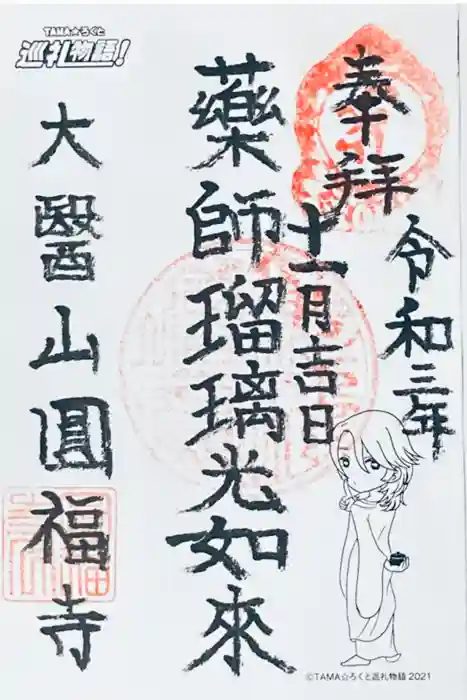 TAMA☆ろくと
巡礼物語!
奉拝
令和三年
十一月吉日
藥師瑠璃光如來
大醫山圓福寺
©TAMA☆ろくと巡礼物語 2021